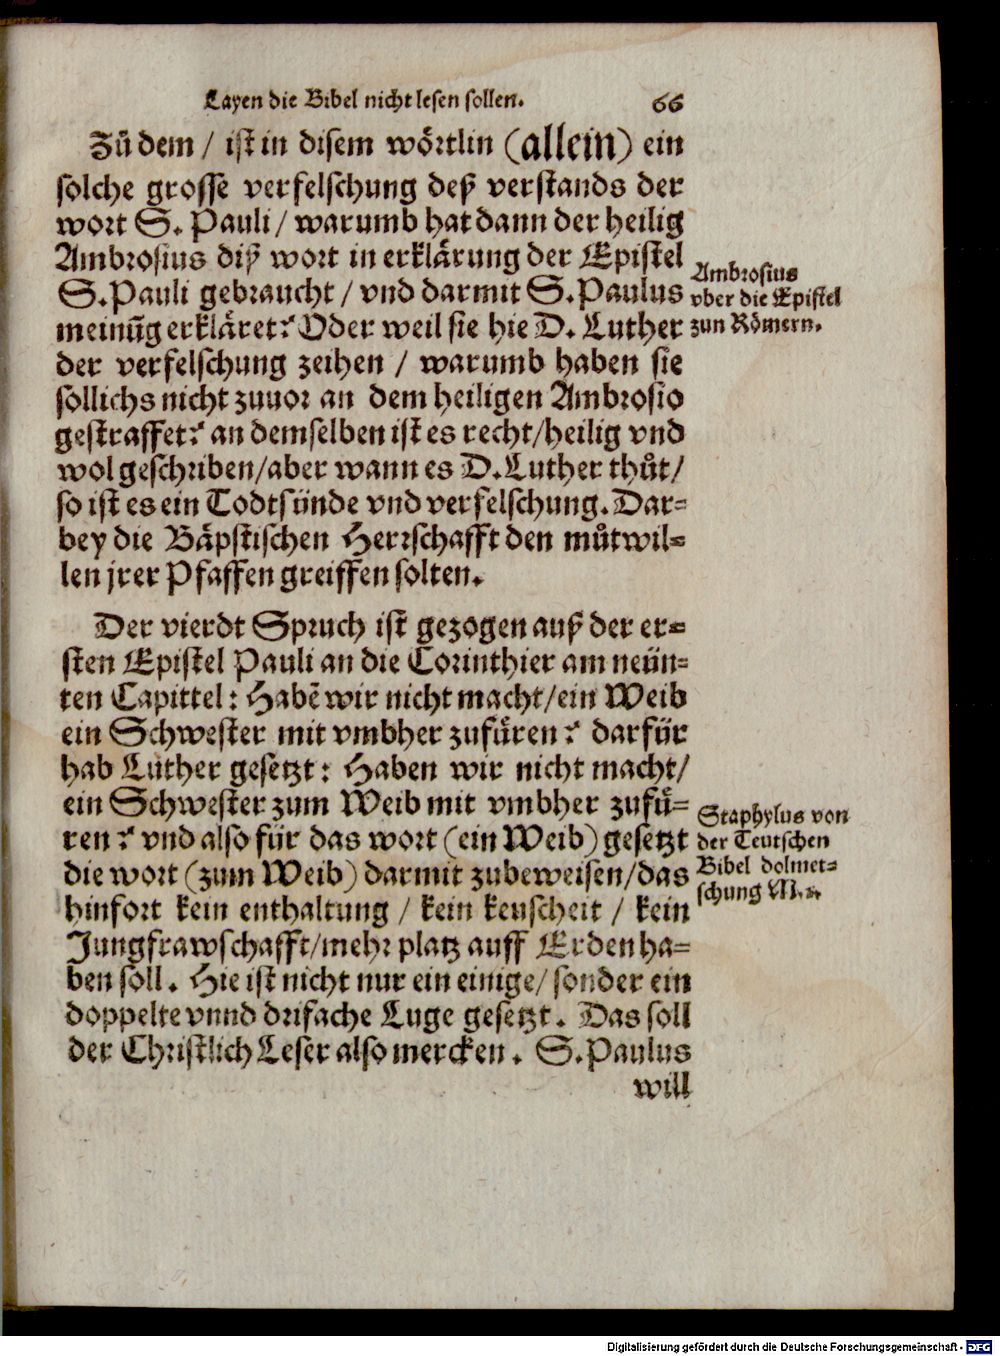 Layen die Bibel nicht lesen sollen. 66
Zů dem / ist in disem wörtlin (allein) ein
solche grosse verfelschung deß verstands der
wort S. Pauli / warumb hat dann der heilig
Ambrosius diß wort in erklärung der Epistel
S. Pauli gebraucht / vnd darmit S. Paulus
meinūg erkläret? Oder weil sie hie D. Luther
der verfelschung zeihen / warumb haben sie
sollichs nicht zuuor an dem heiligen Ambrosio
gestraffet? an demselben ist es recht/heilig vnd
wol geschriben/aber wann es D. Luther thůt/
so ist es ein Todtsünde vnd verfelschung. Dar-
bey die Bäpstischen Herrschafft den můtwil-
len jrer Pfaffen greiffen solten.
Ambrosius
vber die Epistel
zun Römern.
Der vierdt Spruch ist gezogen auß der er-
sten Epistel Pauli an die Corinthier am neün-
ten Capittel: Habē wir nicht macht/ein Weib
ein Schwester mit vmbher zufüren? darfür
hab Luther gesetzt: Haben wir nicht macht/
ein Schwester zum Weib mit vmbher zufü-
ren? vnd also für das wort (ein Weib) gesetzt
die wort (zum Weib) darmit zubeweisen/das
hinfort kein enthaltung / kein keuscheit / kein
Jungfrawschafft/mehr platz auff Erden ha-
ben soll. Hie ist nicht nur ein einige/ sonder ein
doppelte vnnd drifache Luge gesetzt. Das soll
der Christlich Leser also mercken. S. Paulus
will
Staphylus von
der Teutschen
Bibel dolmet-
schung M.4.
Digitalisierung gefördert durch die Deutsche Forschungsgemeinschaft - DFG